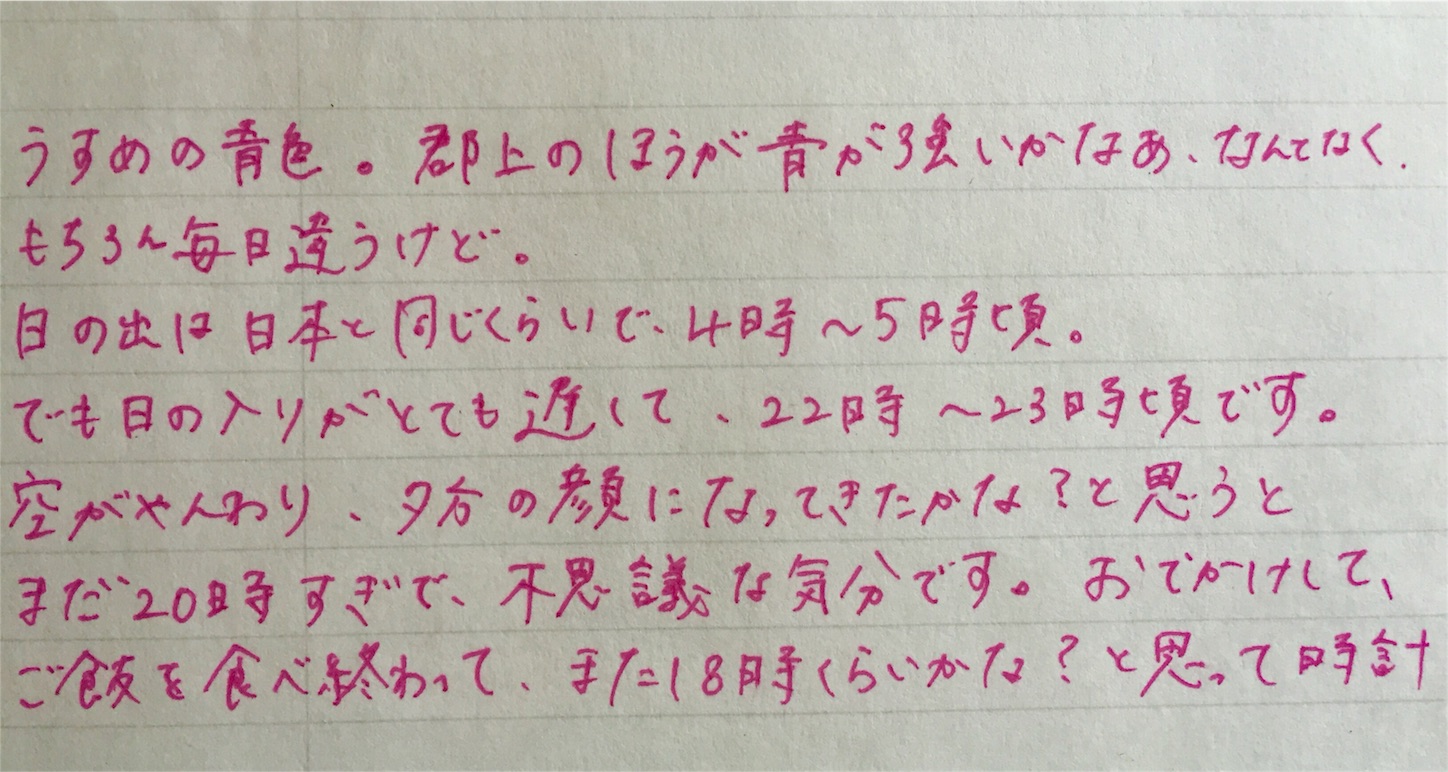 うすめの青色。郡上のほうが青が強いかなあ、なんとなく.
もちろん毎日違うけど。
日の出は日本と同じくらいで、4時〜5時頃。
でも日の入りがとても遅くて、22時〜23時頃です。
空がやんわり、夕方の顔になってきたかな?と思うと
まだ20時すぎで、不思議な気分です。おでかけして、
ご飯を食べ終わって、まだ18時くらいかな?と思って時計